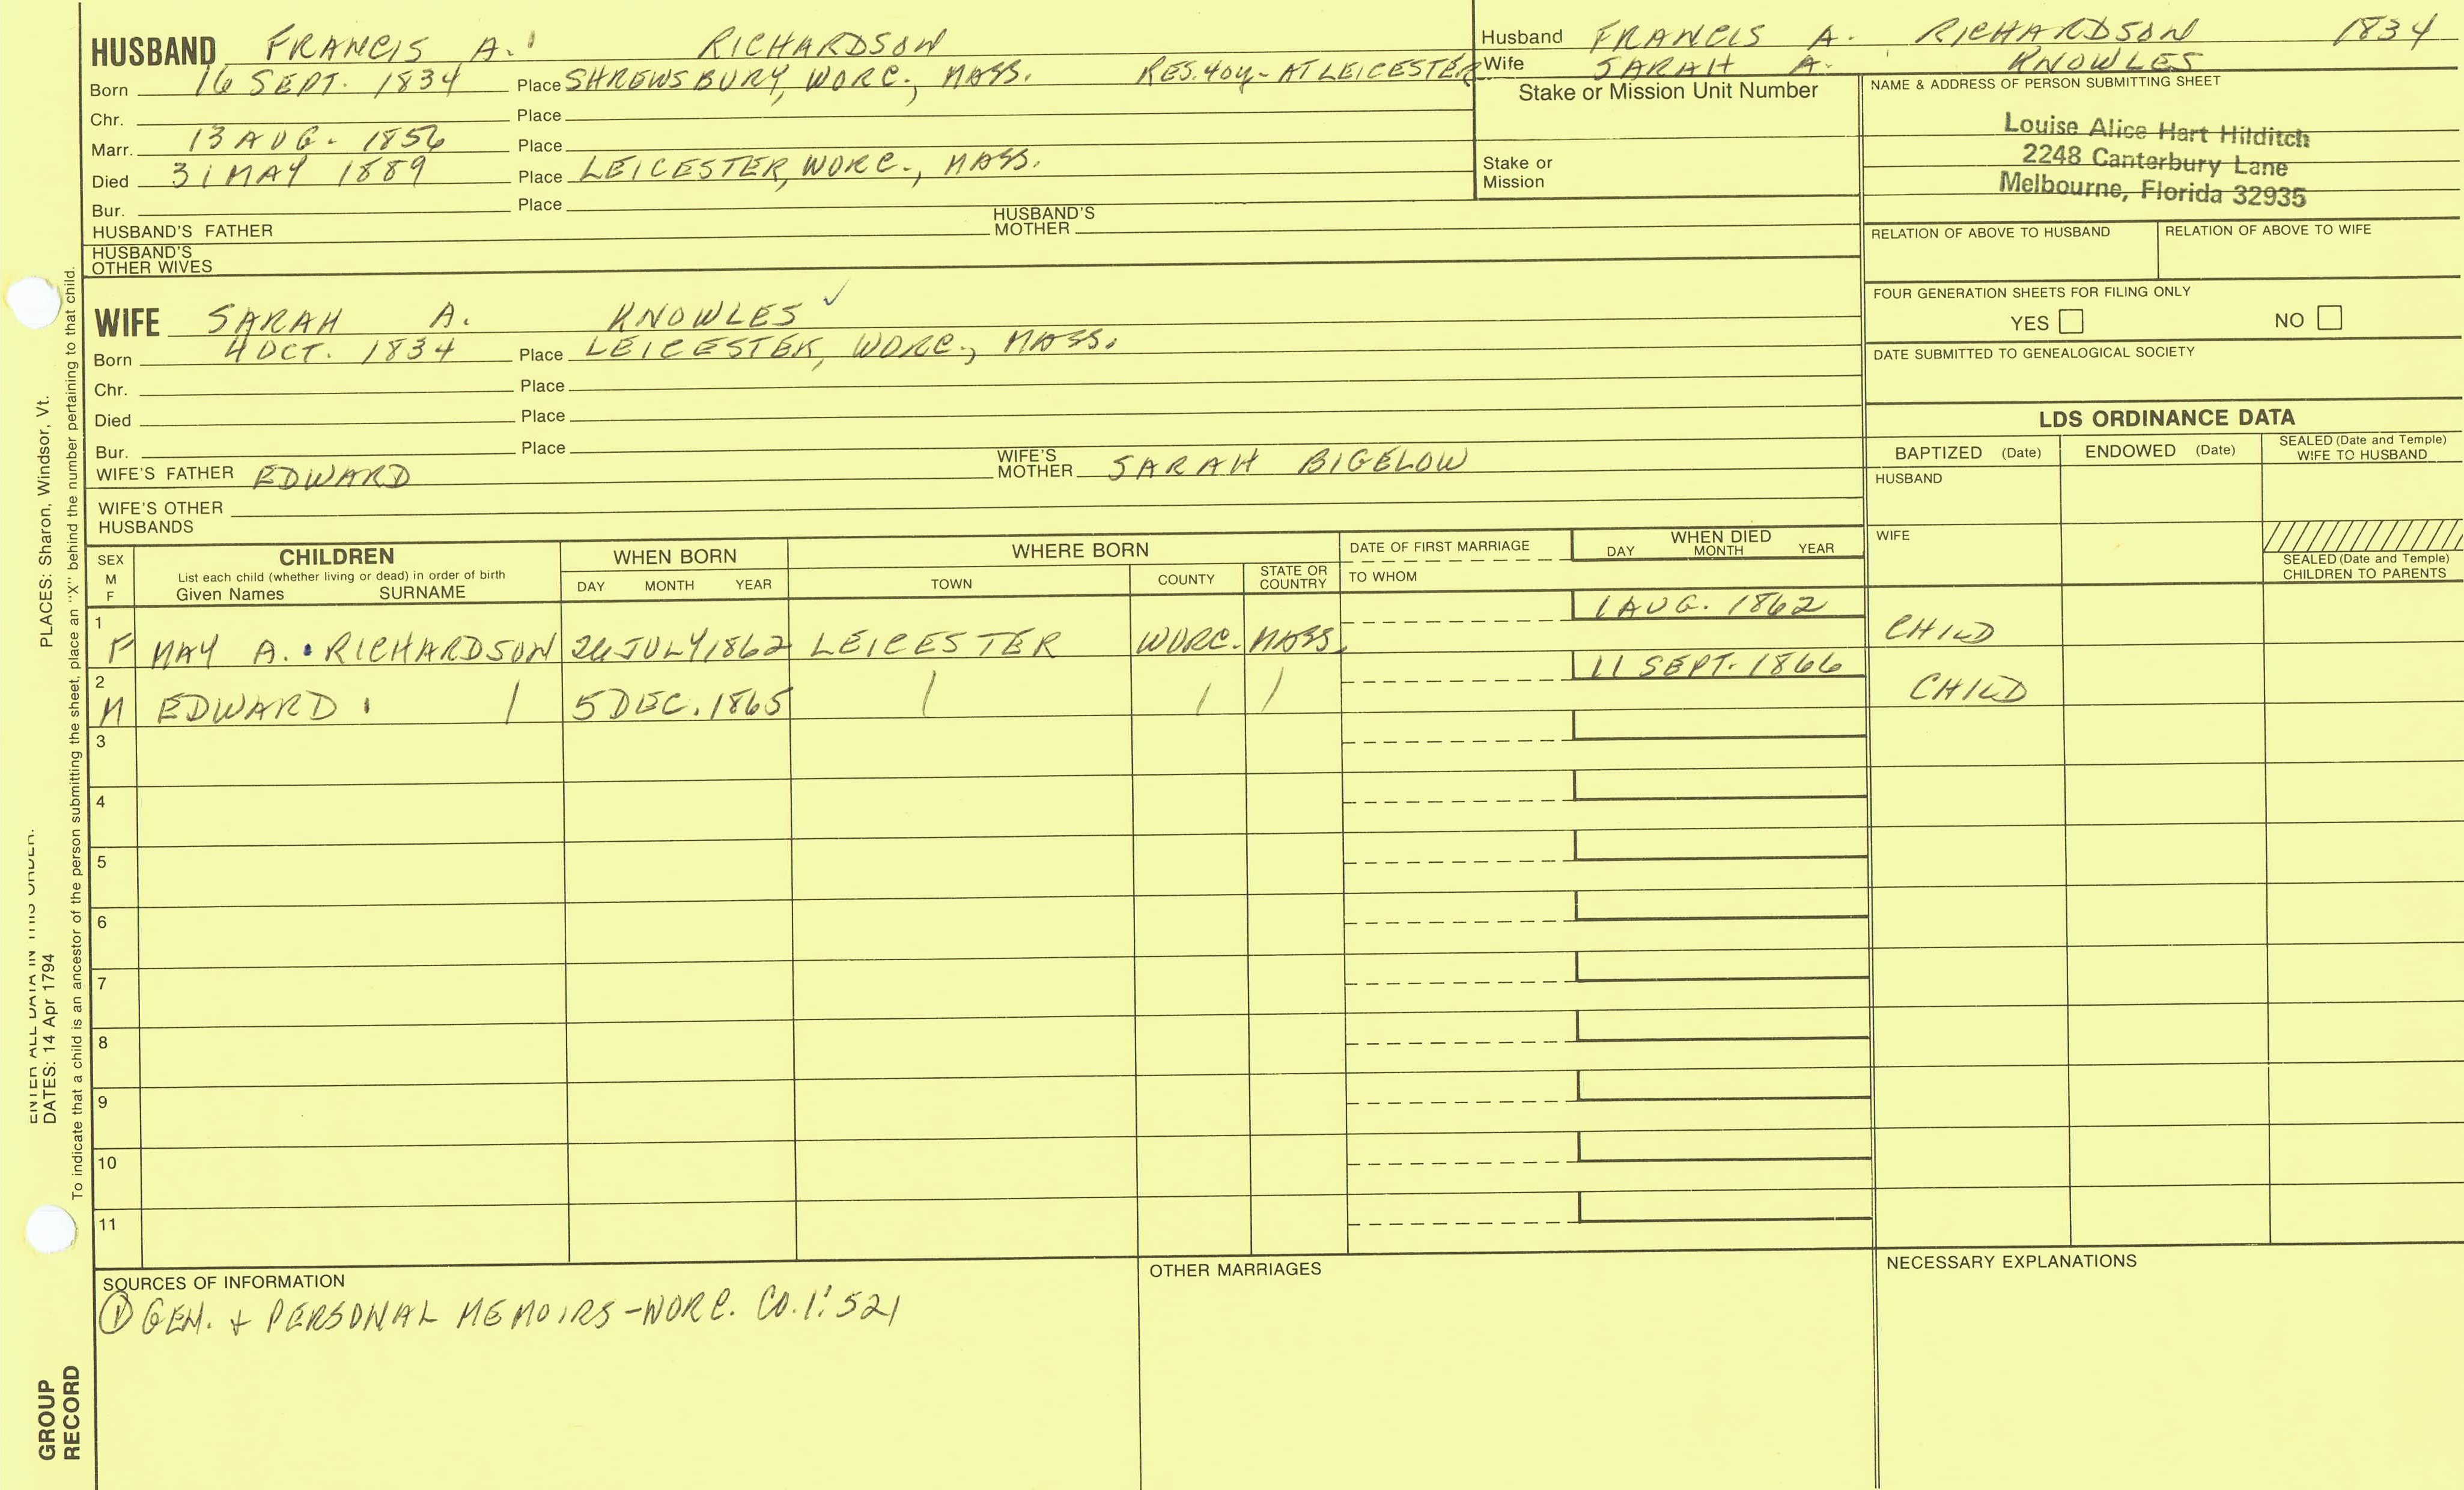 HUSBAND FRANCIS A. RICHARDSON
Born 16 SEPT. 1834 Place SHREWSBURY, WORC., MASS. RES. 40y - AT LEICESTER
Chr. Place
Marr. 13 AUG. 1856 Place
Died 31 MAY 1889 Place LEICESTER, WORC., MASS.
Bur. Place
HUSBAND'S FATHER HUSBAND'S MOTHER
HUSBAND'S OTHER WIVES
Husband FRANCIS A. RICHARDSON 1834
Wife SARAH A. KNOWLES
Stake or Mission Unit Number
Stake or Mission
NAME & ADDRESS OF PERSON SUBMITTING SHEET
Louise Alice Hart Hilditch
2248 Canterbury Lane
Melbourne, Florida 32935
RELATION OF ABOVE TO HUSBAND RELATION OF ABOVE TO WIFE
FOUR GENERATION SHEETS FOR FILING ONLY
YES NO
DATE SUBMITTED TO GENEALOGICAL SOCIETY
WIFE SARAH A. KNOWLES ✓
Born 4 OCT. 1834 Place LEICESTER, WORC., MASS.
Chr. Place
Died Place
Bur. Place
WIFE'S FATHER EDWARD WIFE'S MOTHER SARAH BIGELOW
WIFE'S OTHER HUSBANDS
LDS ORDINANCE DATA
BAPTIZED (Date) ENDOWED (Date) SEALED (Date and Temple) WIFE TO HUSBAND
HUSBAND
WIFE
SEALED (Date and Temple) CHILDREN TO PARENTS
SEX M F
CHILDREN
List each child (whether living or dead) in order of birth
Given Names SURNAME
WHEN BORN
DAY MONTH YEAR
WHERE BORN
TOWN COUNTY STATE OR COUNTRY
DATE OF FIRST MARRIAGE
TO WHOM
WHEN DIED
DAY MONTH YEAR
1 F MAY A. RICHARDSON JULY 1862 LEICESTER WORC. MASS. 1 AUG. 1862 CHILD
2 M EDWARD 5 DEC. 1865 11 SEPT. 1866 CHILD
3
4
5
6
7
8
9
10
11
SOURCES OF INFORMATION
① GEN. + PERSONAL MEMOIRS - WORC. CO. 1:521
OTHER MARRIAGES
NECESSARY EXPLANATIONS
ENTER ALL DATA IN THIS ORDER:
DATES: 14 Apr 1794
PLACES: Sharon, Windsor, Vt.
To indicate that a child is an ancestor of the person submitting the sheet, place an "X" behind the number pertaining to that child.
GROUP
RECORD